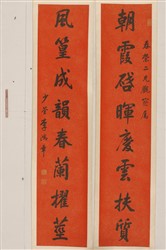 朝霞啓暉慶雲扶質
風篁成韻春蘭擢莖
少荃李鴻章